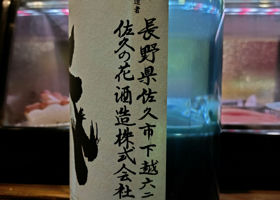 造者
長野県佐久市下越六二
佐久の花酒造株式会社